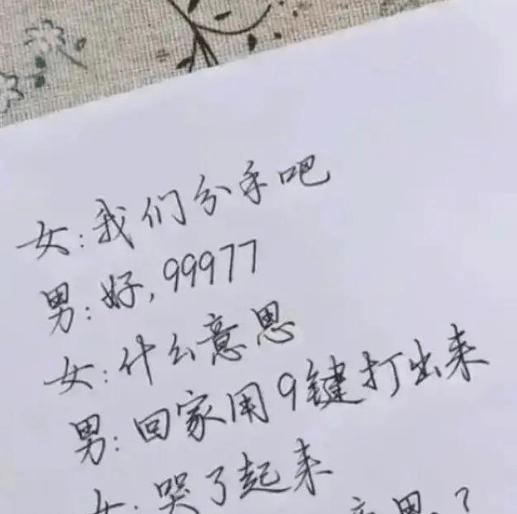 女:我们分手吧
男:好,99977
女:什么意思
男:回家用9键打出来
女:哭了起来
意思?